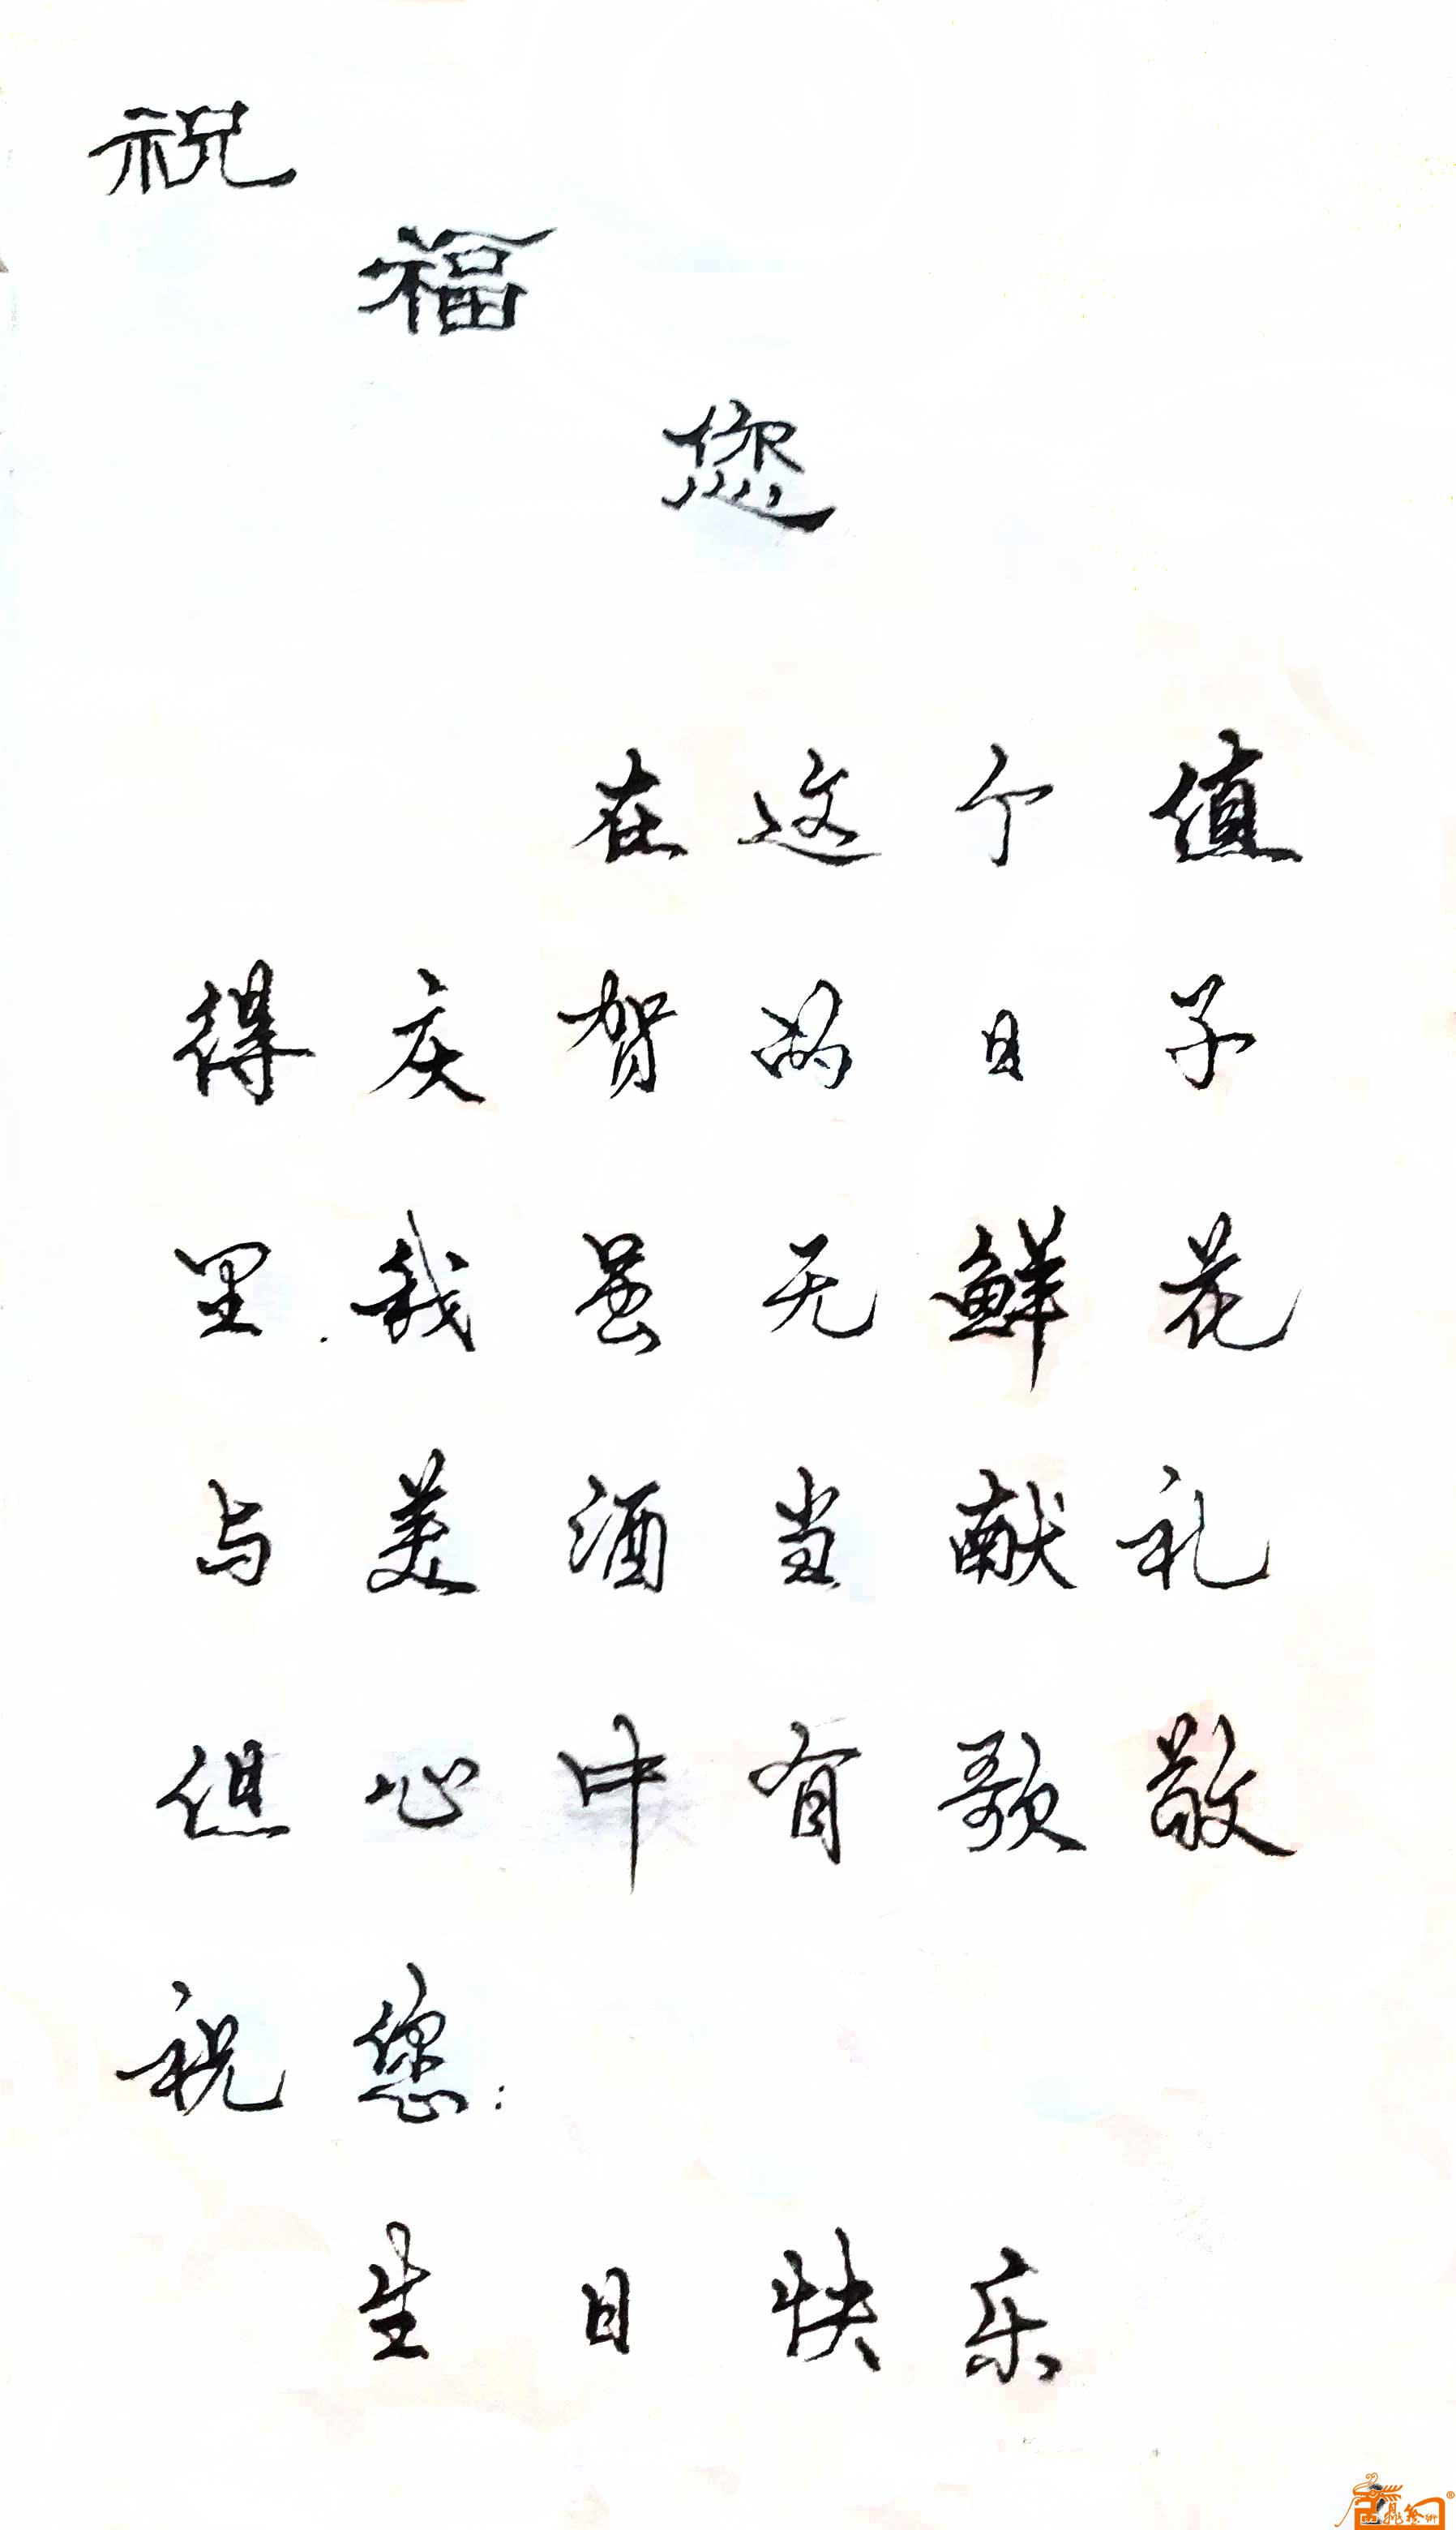 祝
福
您
在这个值
得庆贺的日子
里.我虽无鲜花
与美酒当献礼
但心中有歌敬
祝您:
生日快乐